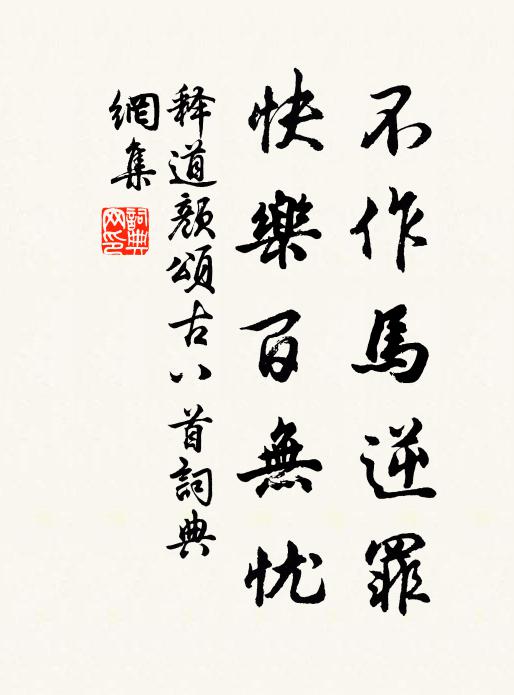 不作馬逆罪
快樂百無忧
释道颜頌古八首詞典
網集
詞典
网印